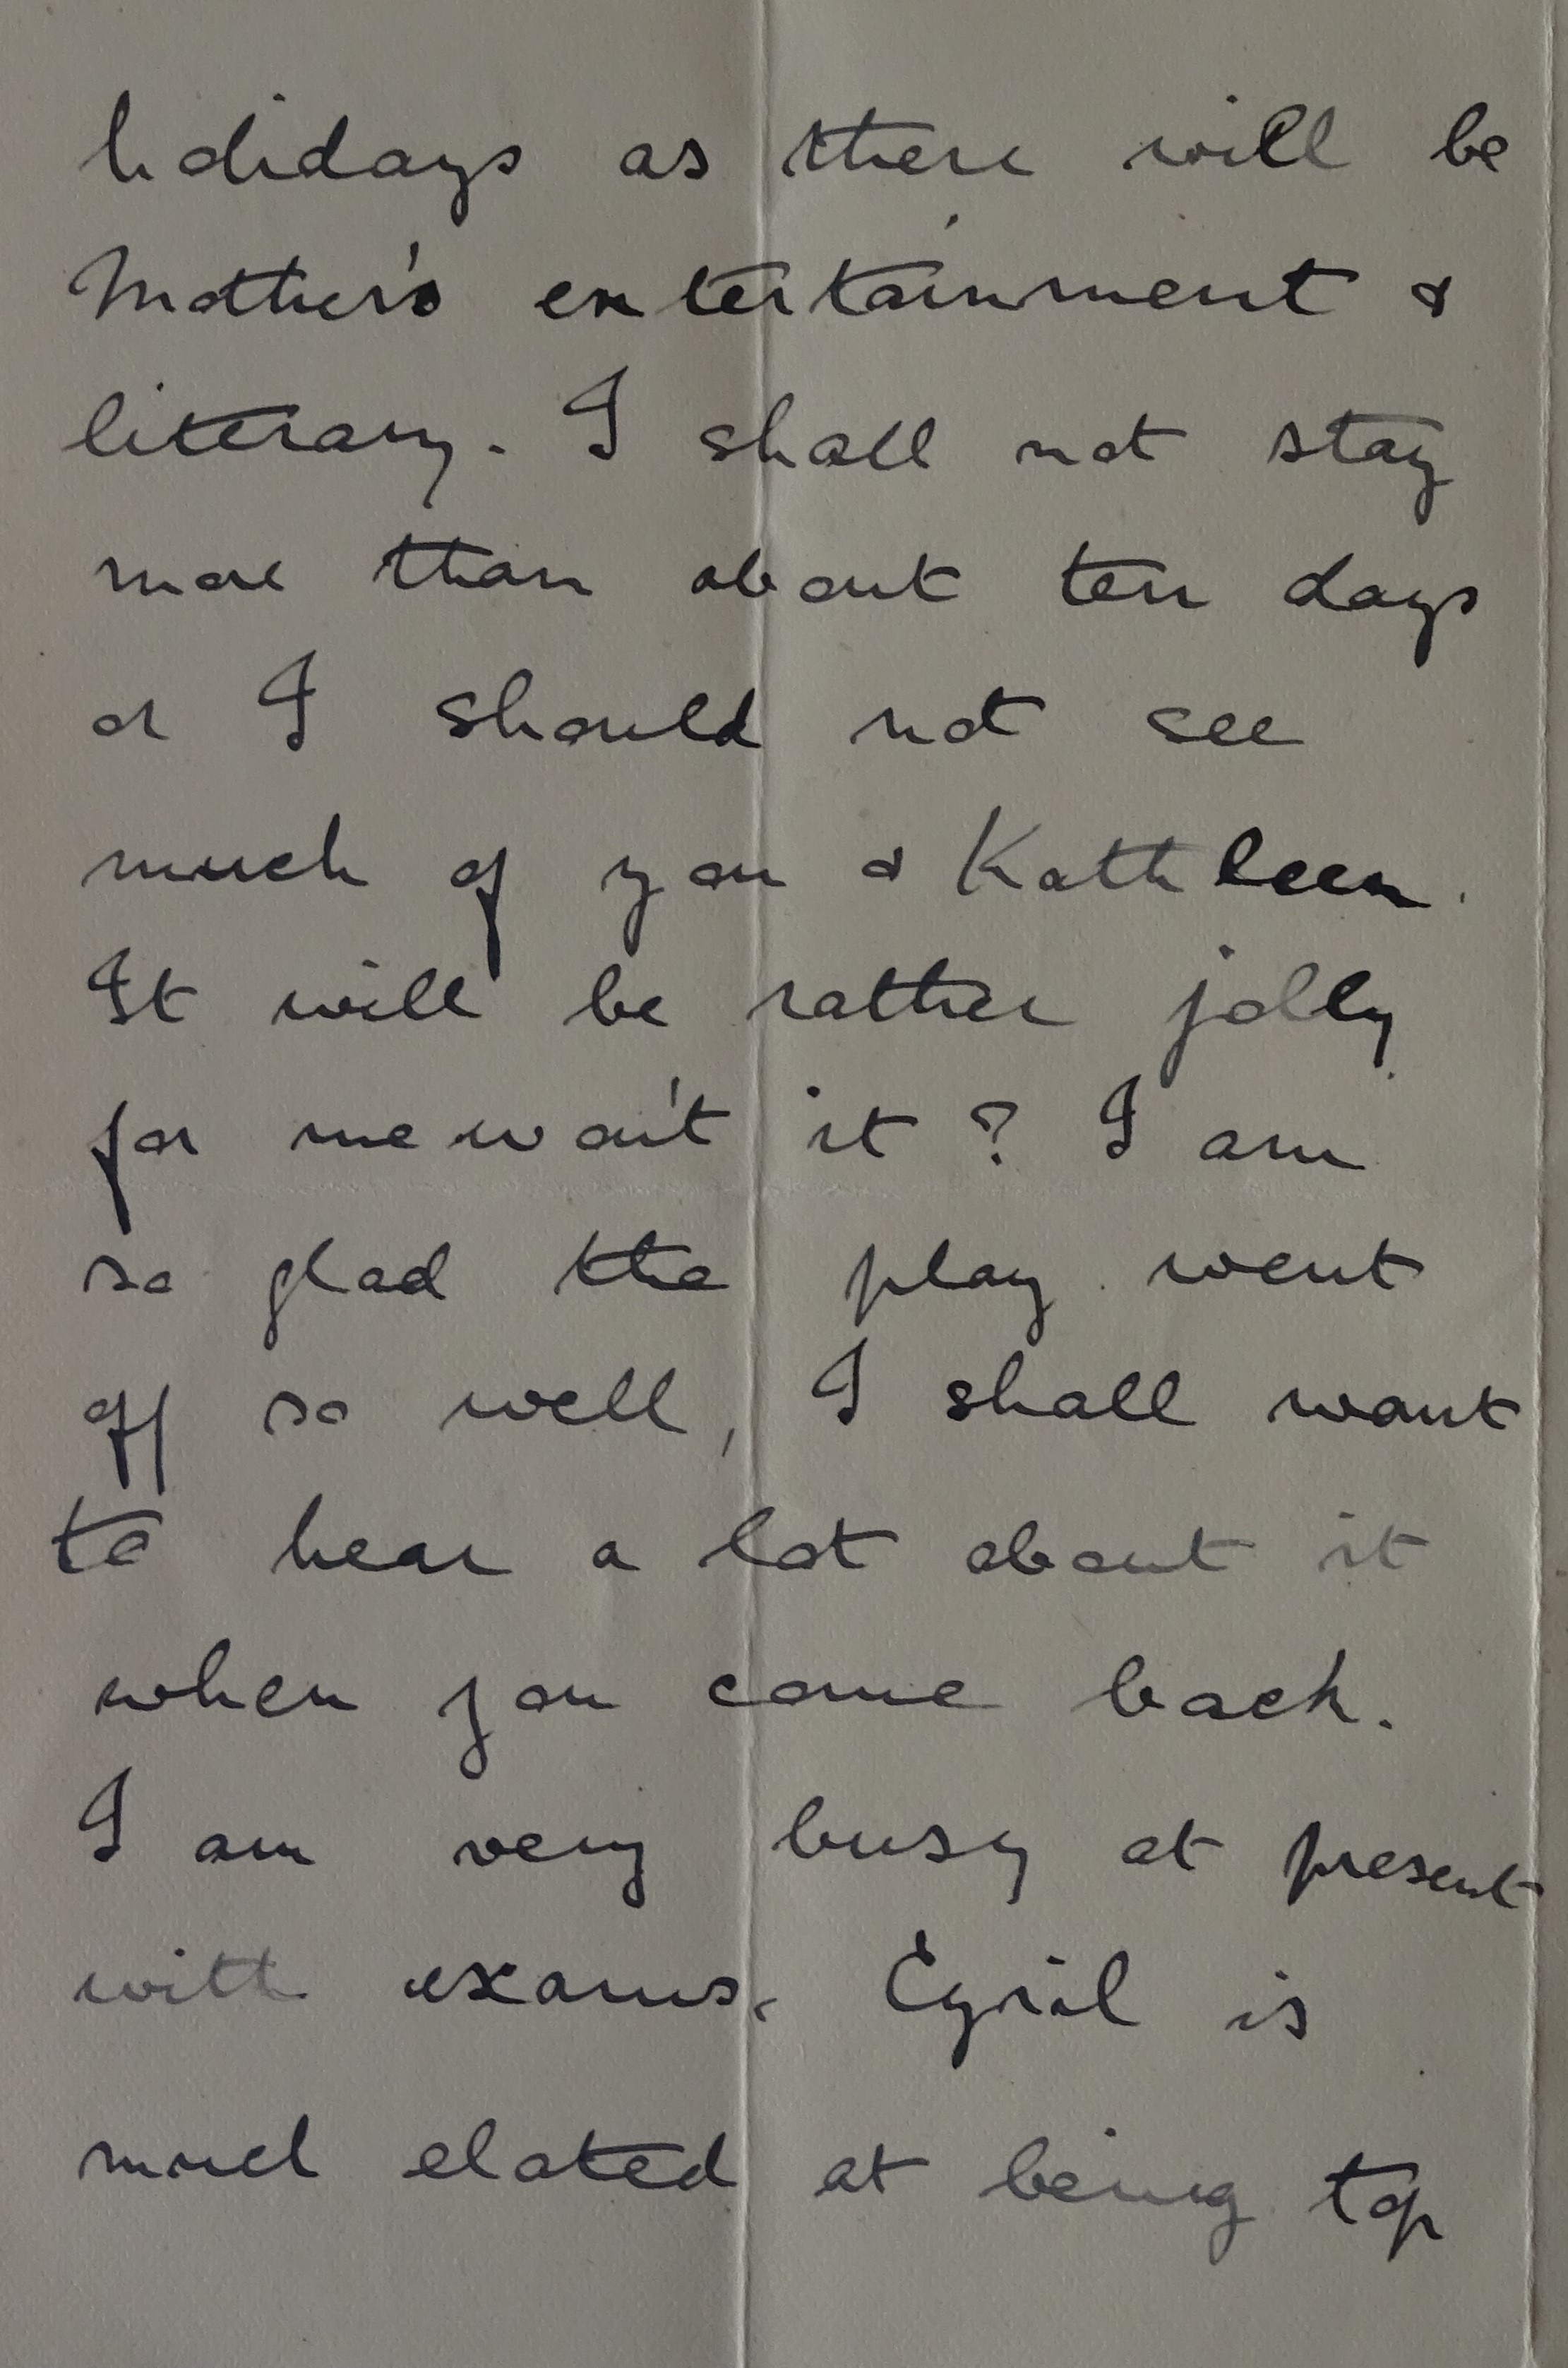 holidays as there will be
Mother's entertainment &
literary. I shall not stay
more than about ten days
or I should not see
much of you & Kathleen.
It will be rather jolly
for me won't it? I am
so glad the play went
off so well, I shall want
to hear a lot about it
when you come back.
I am very busy at present
with exams. Cyril is
much elated at being top